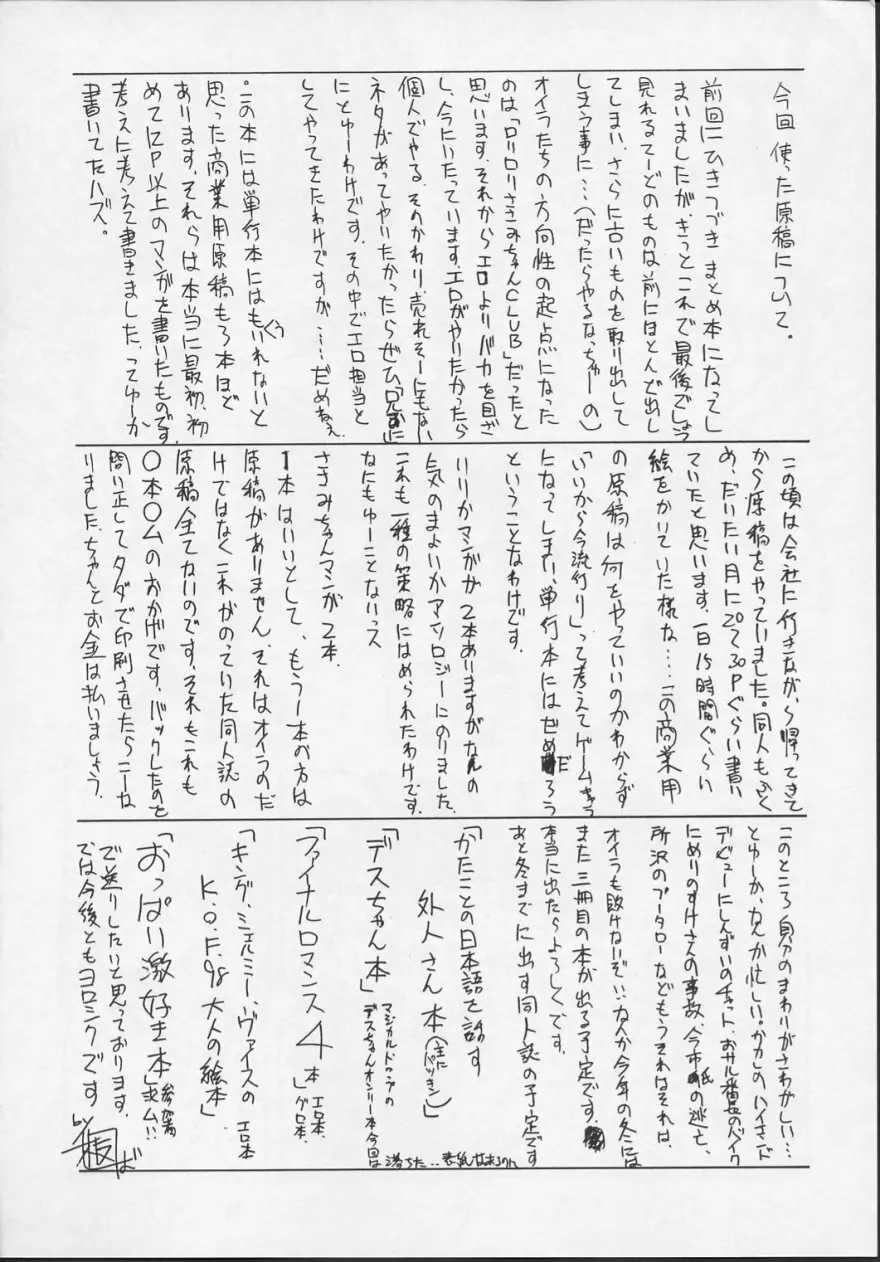 今回使った原稿について。
前回にひきつづきまとめ本になってし
まいましたが、きっとこれで最後でしょう
見れるてーどのものは前にほとんど出し
てしまい、さらに古いものを取り出して
しまう事に…(だったらやるなっちゅーの)
オイラたちの方向性の起点になった
のは「ロリロリさきみちゃんCLUB」だったと
思います。それからエロよりバカを目ざ
し、今にいたっています。エロがやりたかったら
個人でやる、そのかわり、売れそーにもない
ネタがあってやりたかったらぜひ
にとゆーわけです。その中でエロ担当と
してやってきたわけですが……だめねぇ
。この本には単行本にはもぅいれないと
思った商業用原稿も3本ほど
あります。それらは本当に最初、初
めて12P以上のマンガを書いたものです
考えに考えて書きました、ってゆーか
書いてたハズ。
この頃は会社に行きながら帰ってきて
から原稿をやっていました。同人もふく
め、だいたい月に20〜30Pぐらい書い
ていたと思います。一日15時間ぐらい
絵をかいていた様な…この商業用
の原稿は何をやっていいのかわからず
「いいから今流行り」って考えてゲームキャラ
になってしまい、単行本にはだめだろう
ということなわけです。
いりかマンガが2本ありますがなんの
気のまよいかアンソロジーにのりました
これも一種の策略にはめられたわけです。
なにもゆーことないっス
さきみちゃんマンガ2本、
1本はいいとして、もう1本の方は
原稿がありません、それはオイラのだ
けではなくこれがのっていた同人誌の
原稿全てないのです。それもこれも
〇本〇ムのおかげです。バックしたのを
問い正してタダで印刷させたらこーな
りました、ちゃんとお金は払いましょう。
このところ自分のまわりがさわがしい…
とゆーか、なんか忙しい。かかしのハイエンド
デビューにしんずいのチャット、おサル番長のバイク
にめりのすけさんの事故、今市氏の逃亡、
所沢のプータローなどもうそれはそれは、
オイラも敗けないぞ!!なんか今年の冬には
また三冊目の本が出る予定です!
本当に出たらよろしくです。
あと冬までに出す同人誌の予定です
「かたことの日本語を話す
外人さん本(主にパツキン)」
「デスちゃん本」マジカルドロップの
デスちゃんオンリー本今回は
落ちた‥表紙
「ファイナルロマンス4本」エロ本、
グロ本、
「キング、シェルミー、ヴァイスのエロ本
K.O.F.98大人の絵本」
「おっぱい激好き本」参加者
求ム!!
で送りしたいと思っております。
では今後ともヨロシクです
by